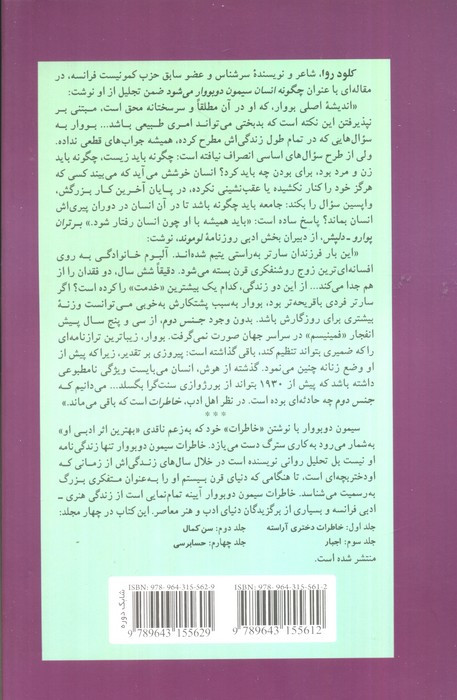 کلود روا، شاعر و نویسندهٔ سرشناس و عضو سابق حزب کمونیست فرانسه، در
مقاله‌ای با عنوان چگونه انسان سیمون دوبووار می‌شود ضمن تجلیل از او نوشت:
«اندیشهٔ اصلی بووار، که او در آن مطلقاً و سرسختانه محق است، مبتنی بر
نپذیرفتن این نکته است که بدبختی می‌تواند امری طبیعی باشد... بووار به
سؤال‌هایی که در تمام طول زندگی‌اش مطرح کرده، همیشه جواب‌های قطعی نداده.
ولی از طرح سؤال‌های اساسی انصراف نیافته است: چگونه باید زیست، چگونه باید
زن و مرد بود، برای بودن چه باید کرد؟ انسان خوشش می‌آید که می‌بیند کسی که
هرگز خود را کنار نکشیده یا عقب‌نشینی نکرده، در پایان آخرین کار بزرگش،
واپسین سؤال را بکند: جامعه باید چگونه باشد تا در آن انسان در دوران پیری‌اش
انسان بماند؟ پاسخ ساده است: «باید همیشه با او چون انسان رفتار شود.» برتران
پوارو ـ دلپش، از دبیران بخش ادبی روزنامهٔ لوموند، نوشت:
«این بار فرزندان سارتر به‌راستی یتیم شده‌اند. آلبوم خانوادگی به روی
افسانه‌ای‌ترین زوج روشنفکری قرن بسته می‌شود. دقیقاً شش سال، دو فقدان را از
هم جدا می‌کند... از این دو زندگی، کدام یک بیشترین «خدمت» را کرده است؟ اگر
سارتر فردی باقریحه‌تر بود، بووار به‌سبب پشتکارش به‌خوبی می‌توانست وزنهٔ
بیشتری برای روزگارش باشد. بدون وجود جنس دوم، از سی و پنج سال پیش
انفجار «فمینیسم» در سراسر جهان صورت نمی‌گرفت. بووار، زیباترین ترازنامه‌ای
را که ضمیری بتواند تنظیم کند، باقی گذاشته است: پیروزی بر تقدیر، زیرا که پیش از
او وضع زنانه چنین می‌نمود. گذشته از هوش، انسان می‌بایست ویژگی نامطبوعی
داشته باشد که پیش از ۱۹۳۰ بتواند از بورژوازی سنت‌گرا بگسلد... می‌دانیم که
جنس دوم چه حادثه‌ای بوده است. در نظر اهل ادب، خاطرات است که باقی می‌ماند.»
***
سیمون دوبووار با نوشتن «خاطرات» خود که به‌زعم ناقدی «بهترین اثر ادبی او»
به‌شمار می‌رود به‌کاری سترگ دست می‌یازد. خاطرات سیمون دوبووار تنها زندگی‌نامهٔ
او نیست بل تحلیل روانی نویسنده است در خلال سال‌های زندگی‌اش از زمانی که
او دختربچه‌ای است، تا هنگامی که دنیای قرن بیستم او را به‌عنوان متفکری بزرگ
به‌رسمیت می‌شناسد. خاطرات سیمون دوبووار آیینه تمام‌نمایی است از زندگی هنری ـ
ادبی فرانسه و بسیاری از برگزیدگان دنیای ادب و هنر معاصر. این کتاب در چهار مجلد:
جلد اول: خاطرات دختری آراسته جلد دوم: سن کمال
جلد سوم: اجبار جلد چهارم: حسابرسی
منتشر شده است.
ISBN: 978- 964-315-562-9
ISBN: 978- 964-315-561-2
شابک دوره
9 789643 155629
9 789643 155612